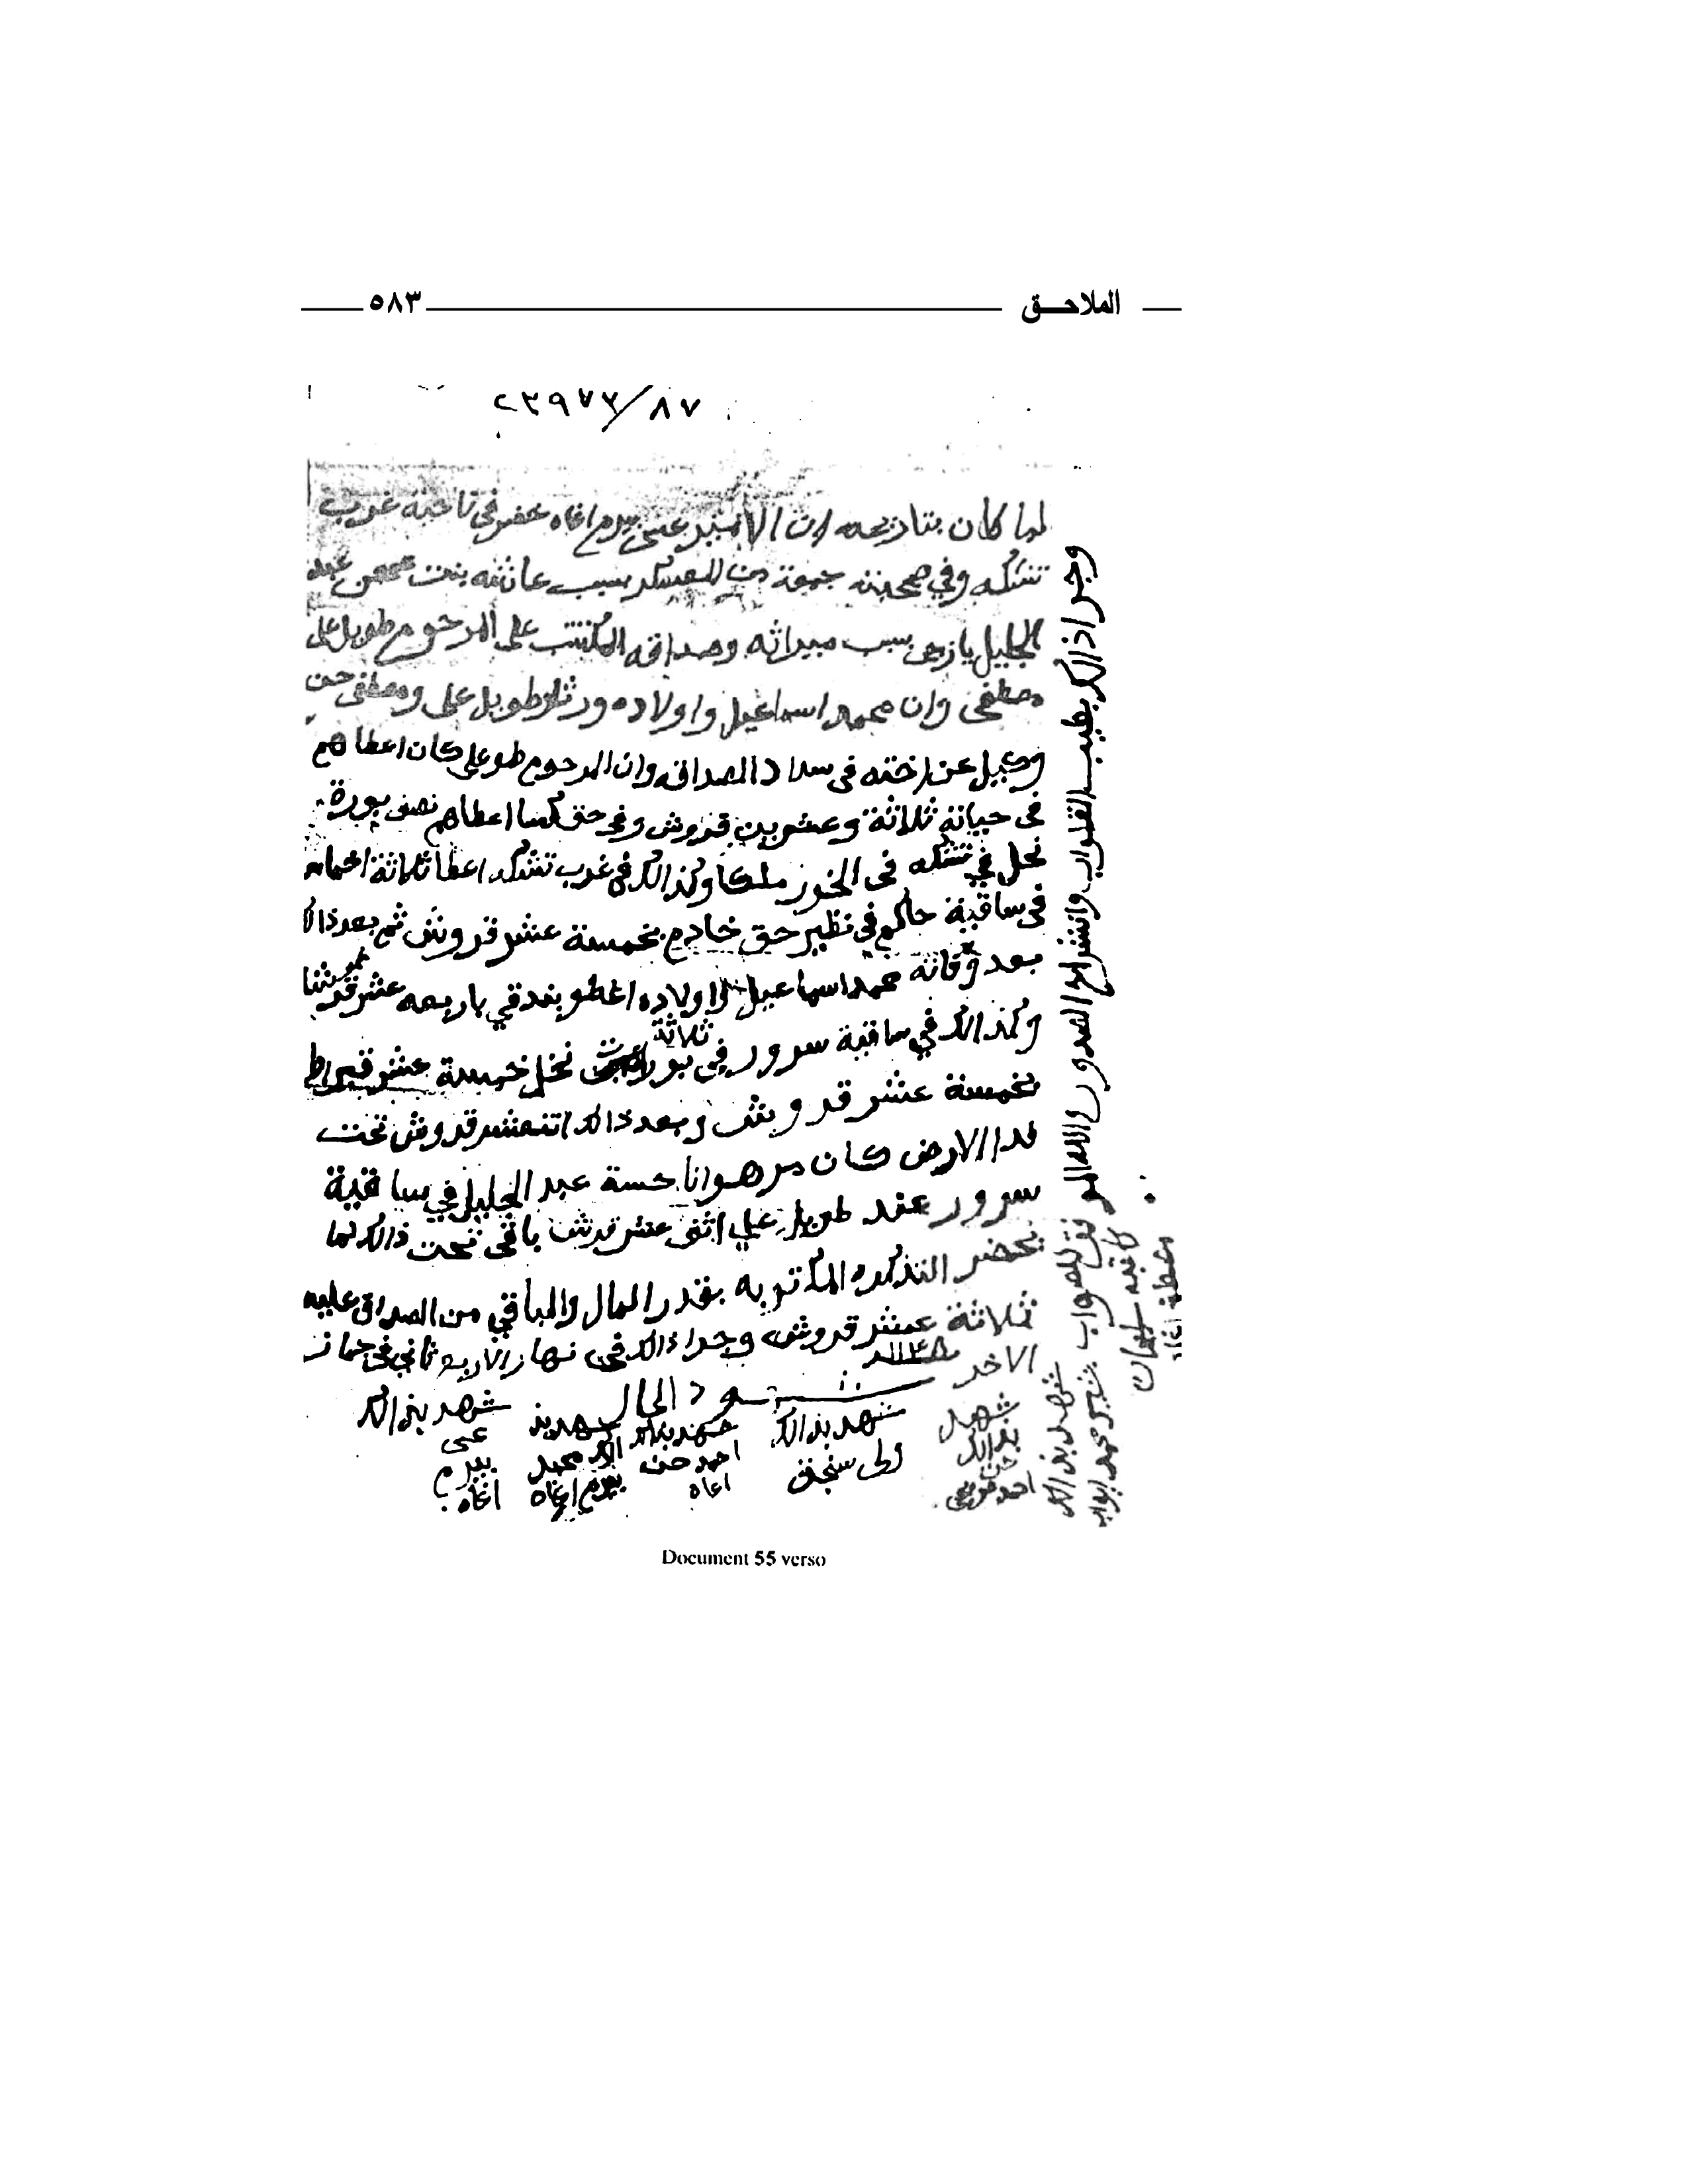 الملاحـــق ٥٨٣
٢٣٩٧٢/٨٧
لما كان بتاريخه ان الامير عيسى بيرم اغاه حضر في ناحية غرب
تشكه وفي صحبته جمعة من العسكر بسبب عائشه بنت عبد
الجليل يازجى سبب ميراثه وصداقه المكتتب على المرحوم طويل على
مصطفى وان محمد اسماعيل واولاده ورثة طويل على ومصطفى حسن
وكيل عن اخته في سداد الصداقه وان المرحوم طو على كان اعطاهم
في حياته ثلاثة وعشرين قروش وفي حق كسا اعطاهم نصف بورة
نخل في تشكه في الخور ملكا وكذالك في غرب تشكه اعطا ثلاثة اخماس
في ساقية حاكم في نظير حق خادم بخمسة عشر قروش ثم بعد ذالك
بعد وفاته محمد اسماعيل واولاده اعطو بندقي باربعه عشر قروش
وكذالك في ساقية سرور في بورة ثلاثة نخل خمسة عشر قيراط
بخمسة عشر قروش وبعد ذالك اتنعشر قروش تحت
فدا الارض كان مرهونا حسة عبد الجليل في ساقية
سرور عند طويل علي اثنى عشر قرش باقى تحت ذالك لما
تحضر التذكره المكتوبه بقدر المال والباقي من الصداق عليه
ثلاثة عشر قروش وجرا ذالك في نهار الاربع ثاني في جماز
الاخر
شهود الحال
شهد بذالك والى سنجق
شهد بذالك احمد حسن اغاه
شهد بذالك محمد بيرم اغاه
شهد بذالك عيسى بيرم اغاه
شهد بذالك احمد
وجرا ذالك بطيب القلواب وانشراح الصدور والله الموفق للصواب
شهد بذالك بشير محمد ابواب
كاتبه سليمان
مصطفى اغاه
Document 55 verso